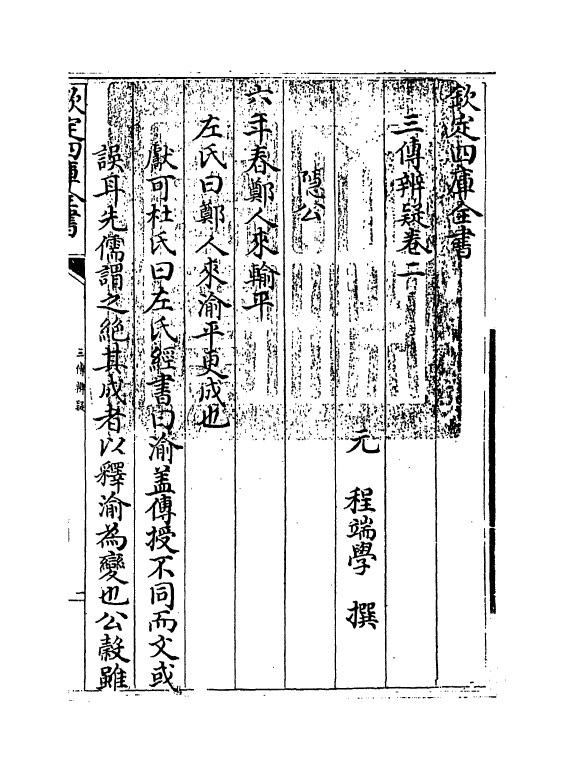 欽定四庫全書
三傳辨疑卷二
元 程端學 撰
隱公
六年春鄭人來輸平
左氏曰鄭人來渝平更成也
獻可杜氏曰左氏經書曰渝蓋傳授不同而文或
誤耳先儒謂之絶其成者以釋渝為變也公榖雖
欽定四庫全書
三傳辨疑